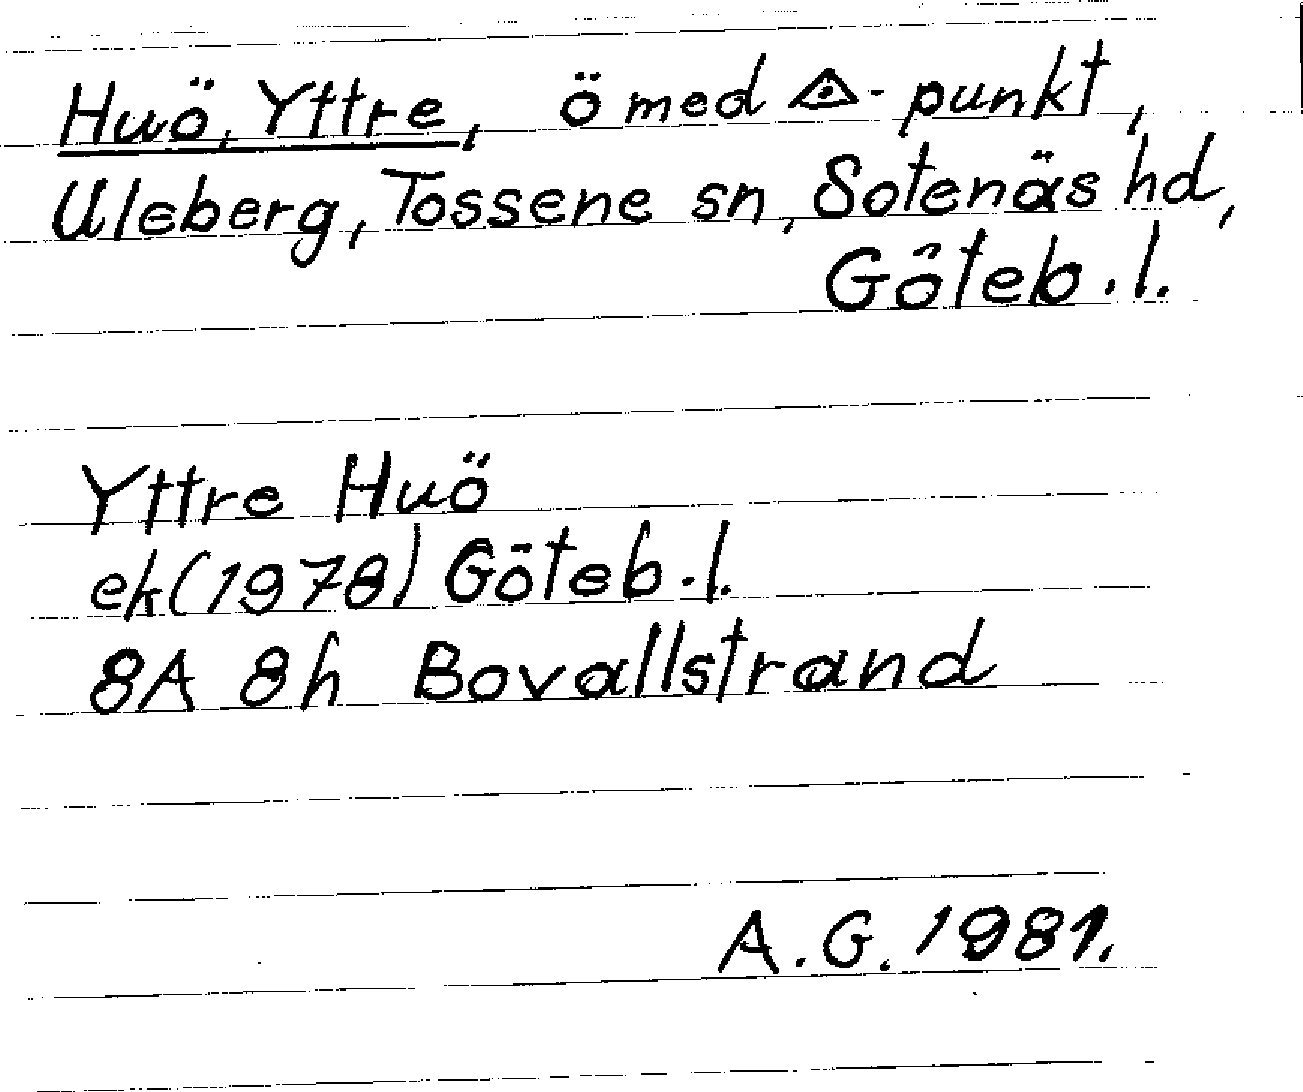 Huö, Yttre, ö med △-punkt,
Uleberg, Tossene sn, Sotenäs hd,
Göteb.l.
Yttre Huö
ek (1978) Göteb.l.
8A 8h Bovallstrand
A.G. 1981.